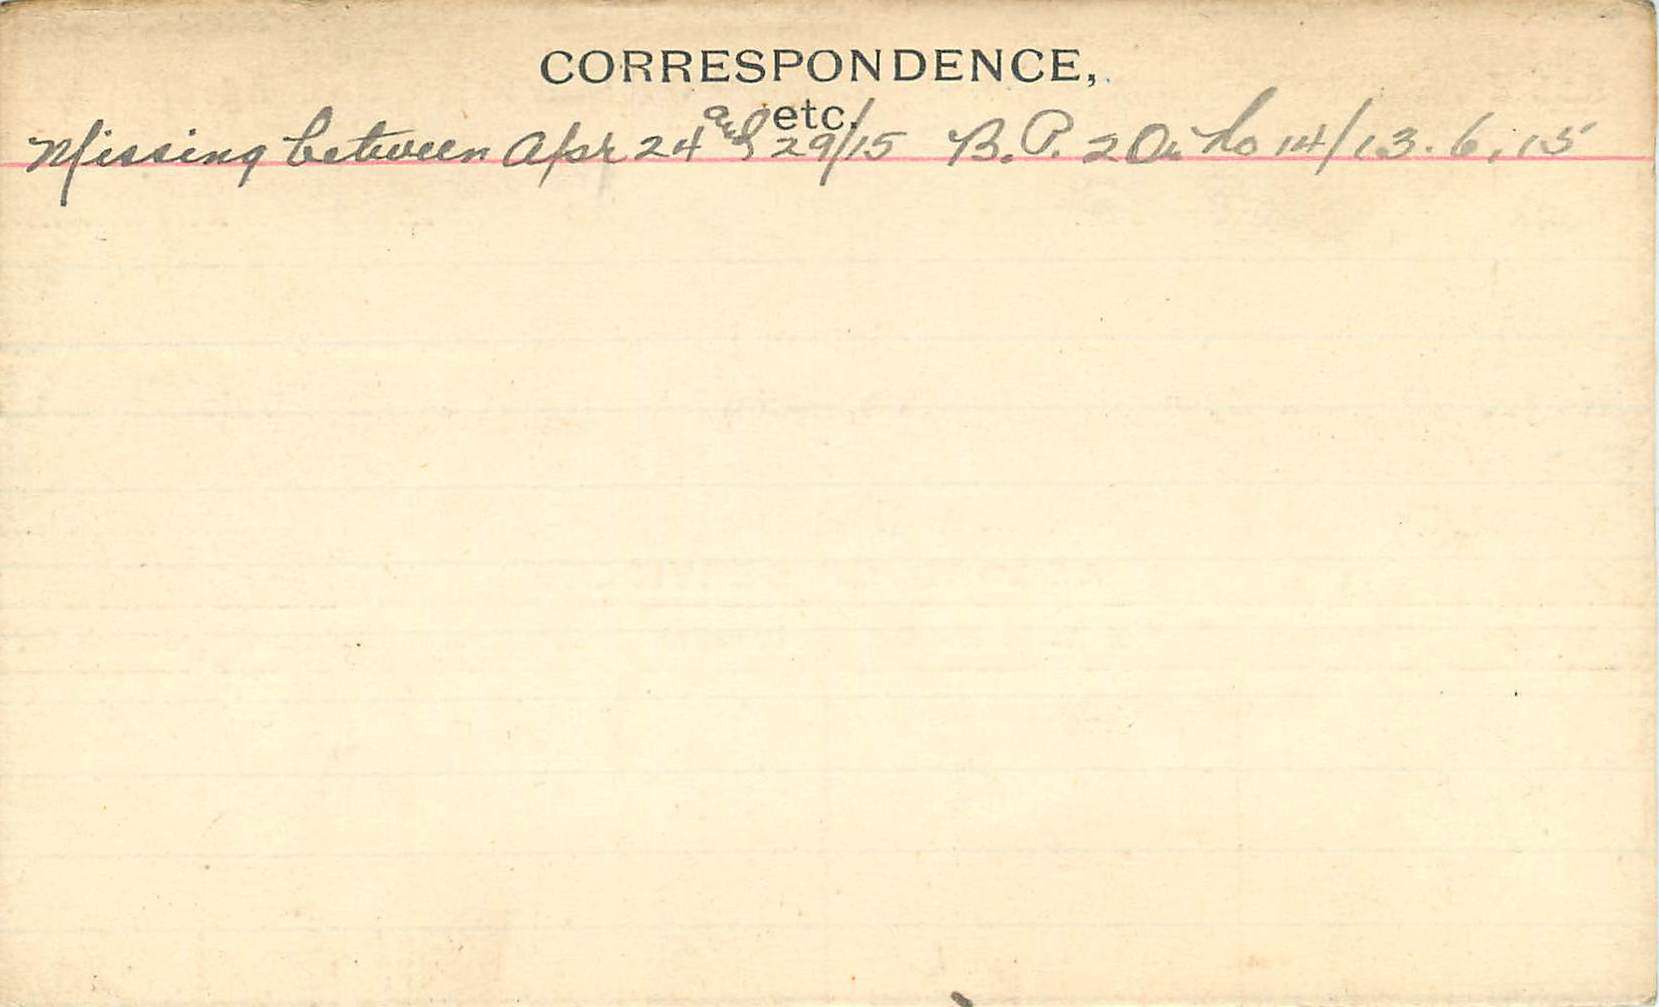 CORRESPONDENCE,
etc.
Missing between Apr 24 and 29/15 B. P. 2 No 14/13.6.15